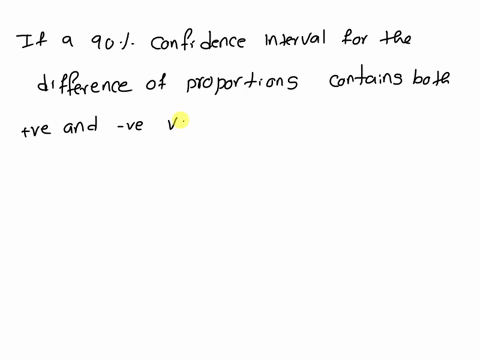 If a 90% confidence interval for the
difference of proportions contains both
+ve and -ve v